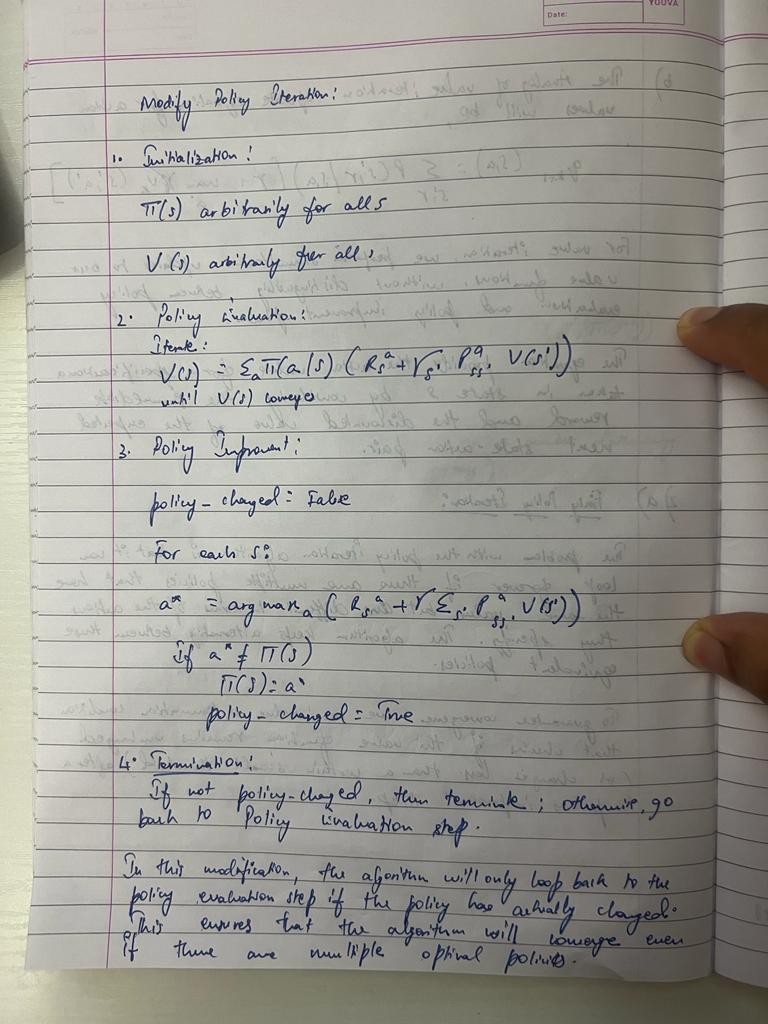 YOUVA
Date:
Modify Policy Iteration:
1. Initialization:
Π(s) arbitrarily for all s
V(s) arbitrarily for all s
2. Policy Evaluation:
Iterate:
V(s) = Σa Π(a/s) (Rs^a + γs' Pss'^a V(s'))
until V(s) converges
3. Policy Improvment:
policy_changed = False
For each s:
a* = arg maxa (Rs^a + γ Σs' Pss'^a V(s'))
If a* ≠ Π(s)
Π(s) = a*
policy_changed = True
4. Termination:
If not policy-changed, then terminate; otherwise, go
back to Policy Evaluation step.
In this modification, the algorithm will only loop back to the
policy evaluation step if the policy has actually changed.
This ensures that the algorithm will converge even
if there are multiple optimal policies.